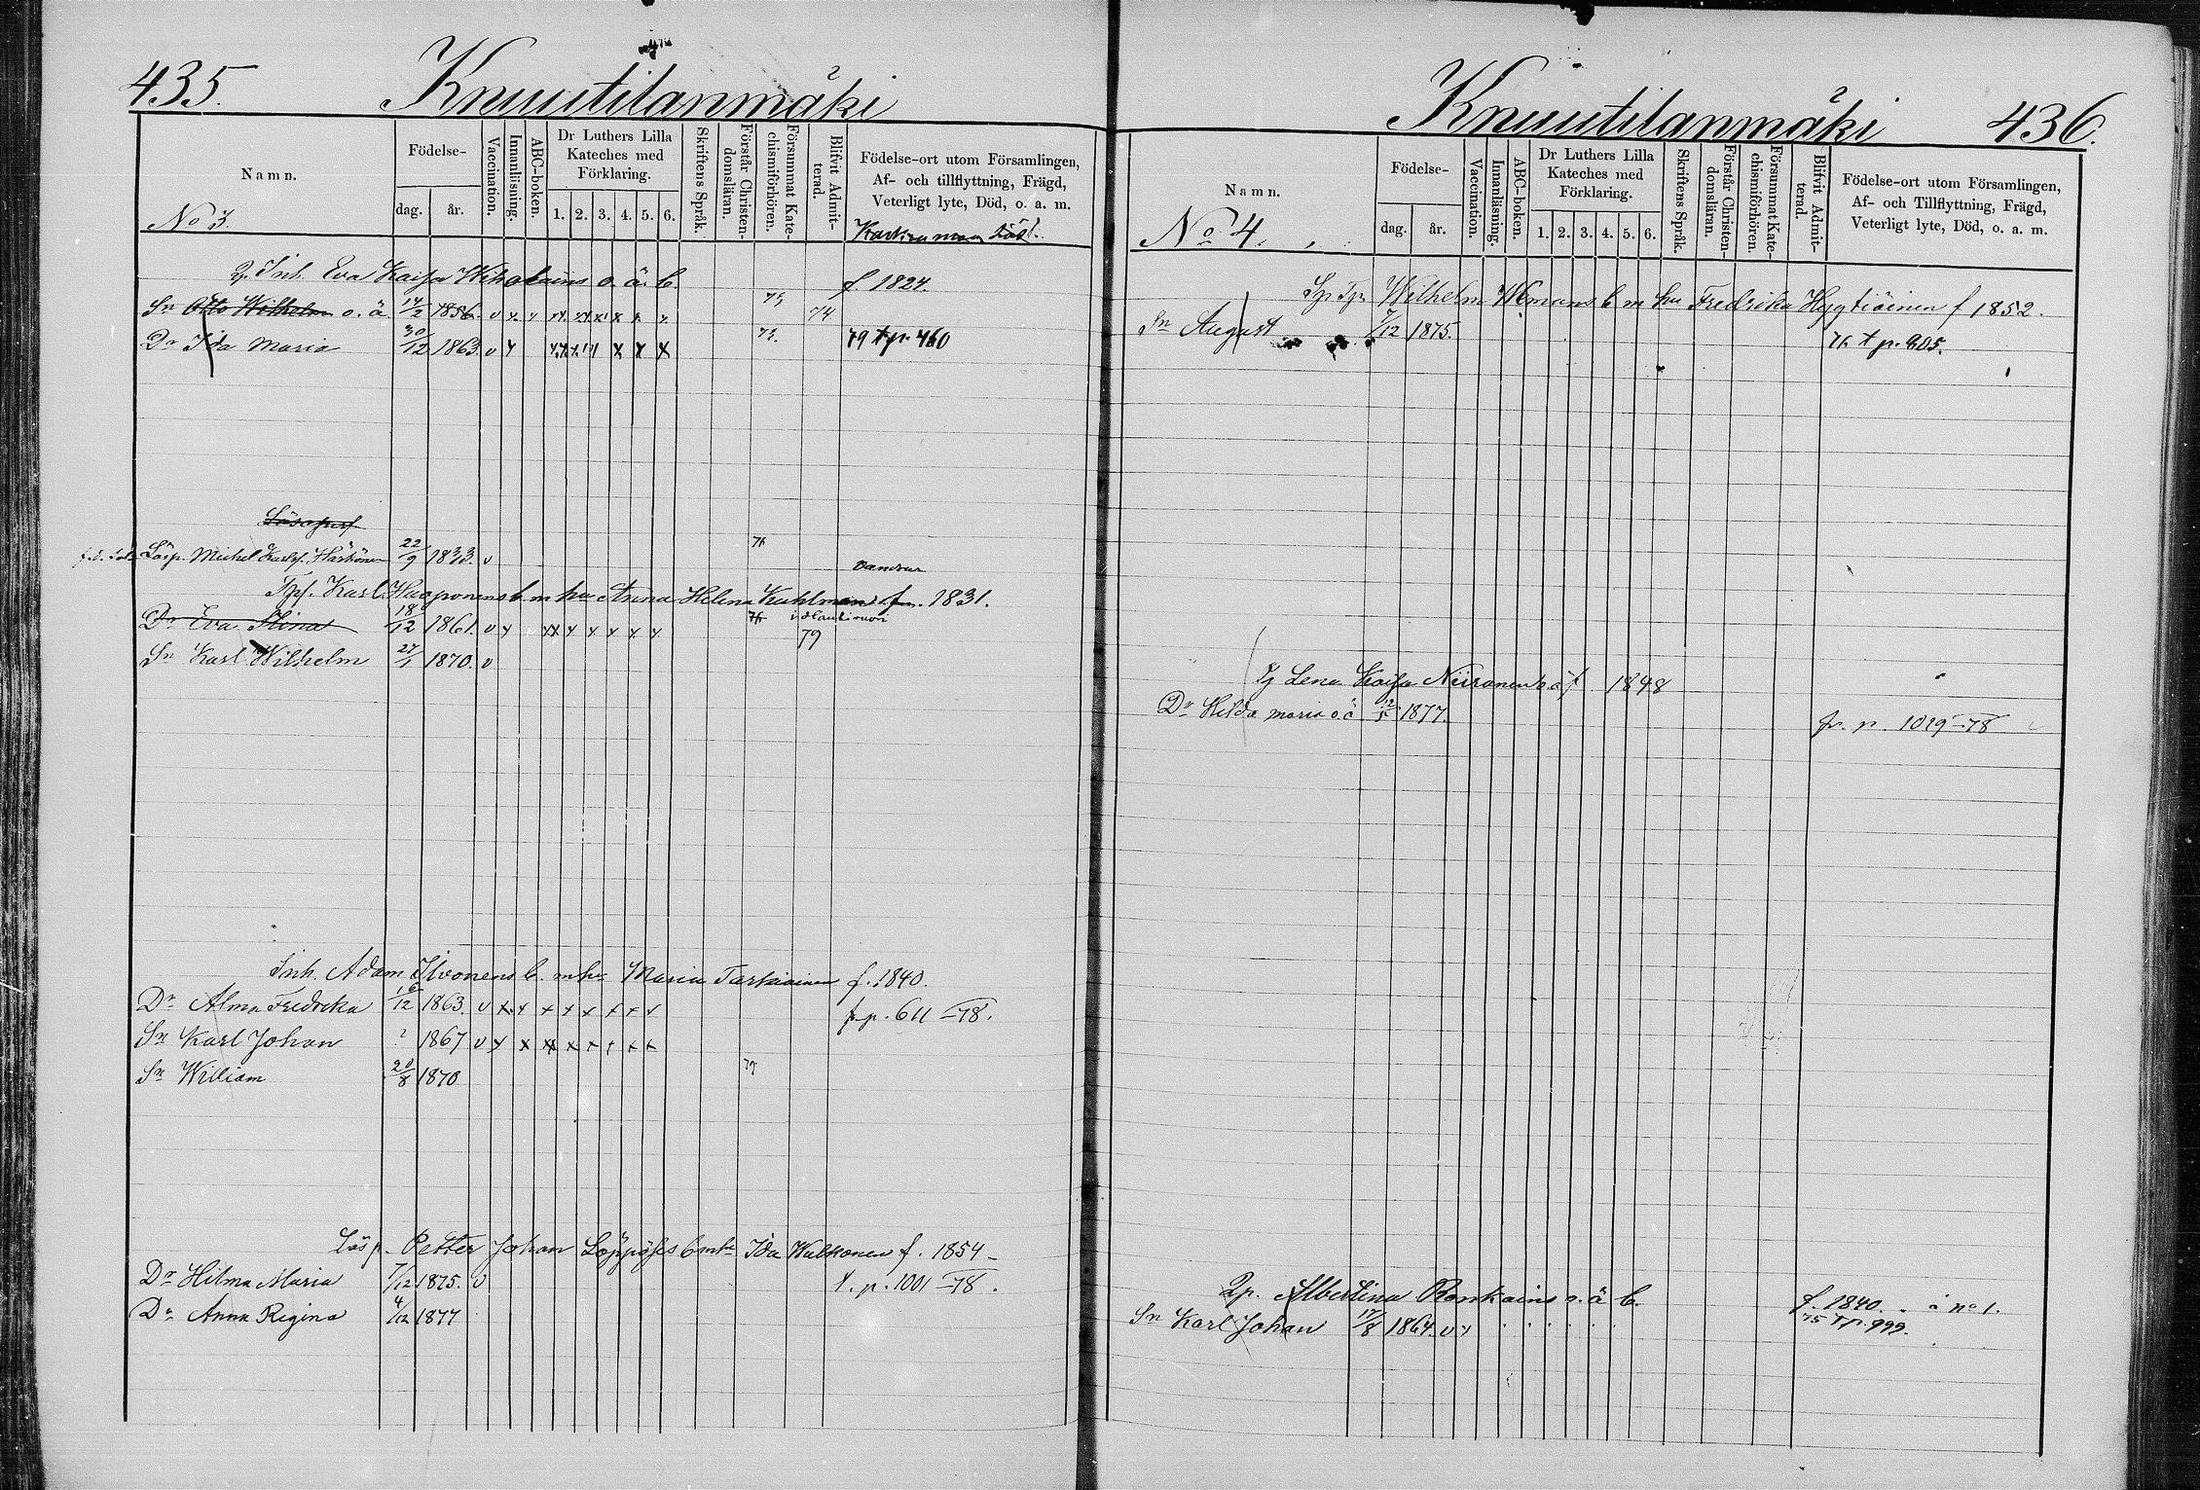 435. Knuutilanmäki
Namn.
Födelse-
dag.
år.
Vaccination.
Innanläsning.
ABC-boken.
Dr Luthers Lilla Kateches med Förklaring.
1. 2. 3. 4. 5. 6.
Skriftens Språk.
Förstår Christendomsläran.
Försummat Katechismiförhören.
Blifvit Admitterad.
Födelse-ort utom Församlingen,
Af- och tillflyttning, Frägd,
Veterligt lyte, Död, o. a. m.
No 3.
Inh. Eva Kaisa o. ä. b. f 1824.
Sn Otto Wilhelm o. ä 14/2 1856. v 75 74
Dr Ida Maria 30/12 1863. v 79 t p. 460
Lösp. Michel Härkönen 22/9 1833. v 76
Karl Haaponens b. m hu Anna Helena Kuhlman f. 1831.
Dr Eva Stina 18/12 1861. v 79
Sn Karl Wilhelm 27/1 1870. v
Inh. Adam Ilvonens b. m hu Maria Tarkiainen f. 1840.
Dr Alma Fredrika 12 1863. v fr p. 611 -78.
Sn Karl Johan ? 1867 v
Sn William 20/8 1870 79
Lösp. Petter Johan b m hu Ida f. 1854
Dr Hilma Maria 7/12 1875. v f. p. 1001 -78.
Dr Anna Regina 4/12 1877
Knuutilanmäki 436.
Namn.
Födelse-
dag.
år.
Vaccination.
Innanläsning.
ABC-boken.
Dr Luthers Lilla Kateches med Förklaring.
1. 2. 3. 4. 5. 6.
Skriftens Språk.
Förstår Christendomsläran.
Försummat Katechismiförhören.
Blifvit Admitterad.
Födelse-ort utom Församlingen,
Af- och Tillflyttning, Frägd,
Veterligt lyte, Död, o. a. m.
No 4.
Wilhelm b m hu Fredrika Hyytiäinen f 1852.
Sn August 7/12 1875. 76 t p. 805.
Lena Kaisa Niiranen o. ä f. 1848
Dr Hilda Maria o. ä 1877. fr. p. 1029 -78
Albertina Ronkains o. ä b. f. 1840. å no 1.
Sn Karl Johan 17/8 1864. v 75 t p. 999.